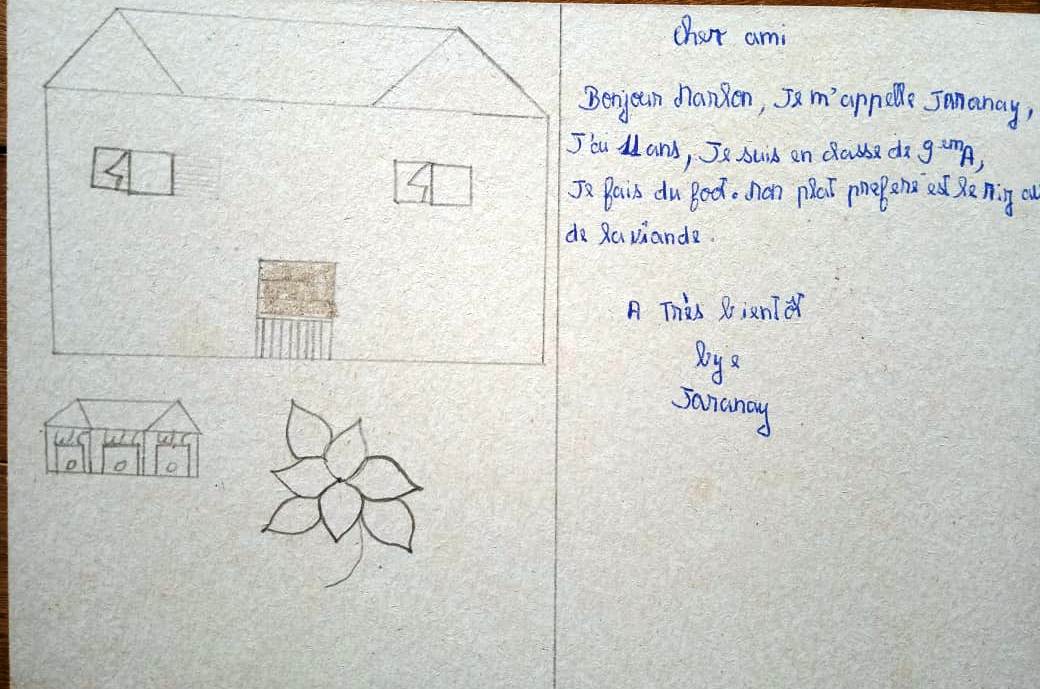 Cher ami
Bonjour Marlon, Je m'appelle Jaranay,
J'ai 11 ans, Je suis en classe de 9emA,
Je fais du foot. Mon plat prefere est le riz au
de la viande.
A Très bientôt
bye
Jaranay
W.C W.C W.C